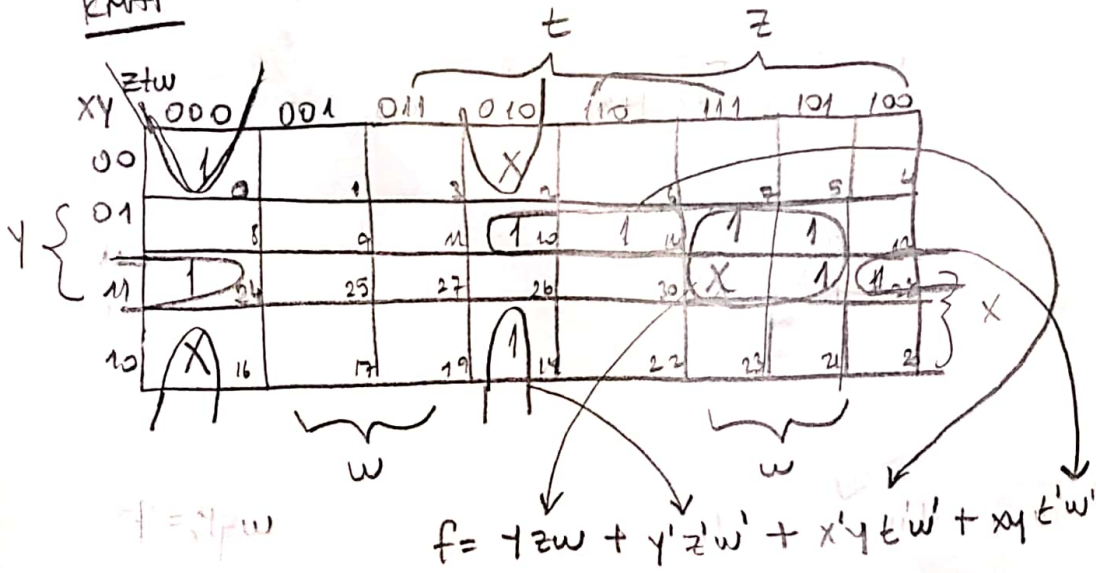 KMAP
t z
ztw
XY 000 001 011 010 110 111 101 100
00 1 0 1 3 X 2 6 7 5 4
Y { 01 8 9 11 1 10 1 14 1 1 12
11 1 24 25 27 26 30 X 1 1 X
10 X 16 17 19 1 18 22 23 21 20
w w
f = yzw + y'z'w' + x'yt'w' + xyt'w'